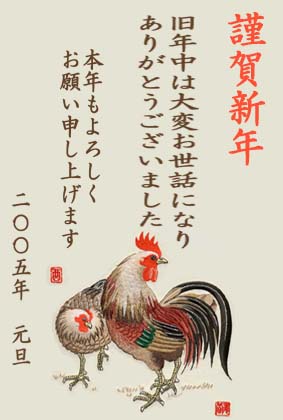 謹賀新年
旧年中は大変お世話になり
ありがとうございました
本年もよろしく
お願い申し上げます
二〇〇五年　元旦
酉